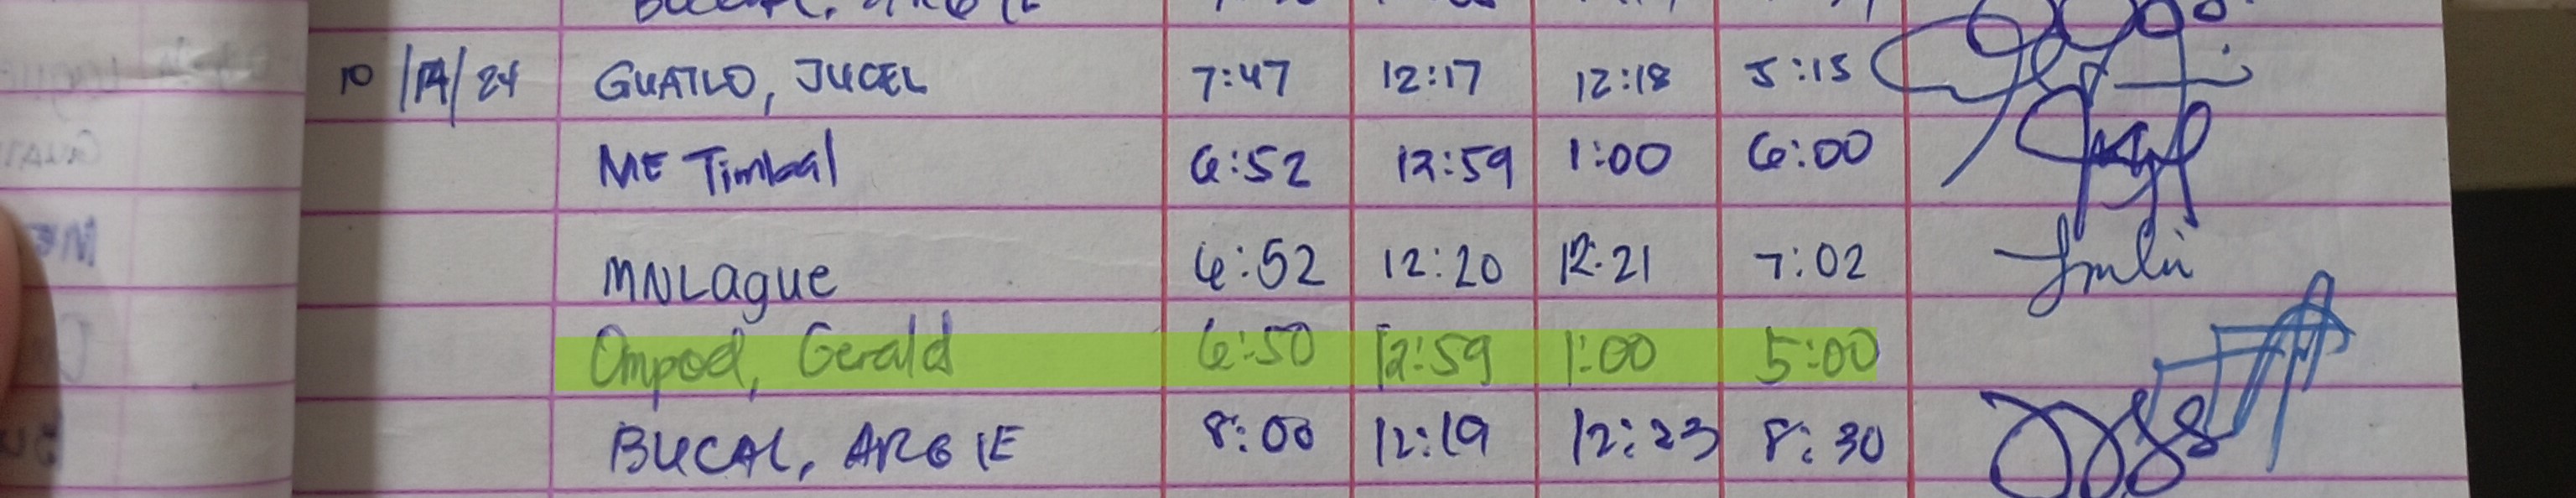 10/14/24 GUATLO, JUCEL 7:47 12:17 12:18 5:15
ME Timbal 6:52 12:59 1:00 6:00
MNLague 6:52 12:20 12:21 7:02
Ompod, Gerald 6:50 12:59 1:00 5:00
BUCAL, ARGIE 8:00 12:19 12:23 8:30